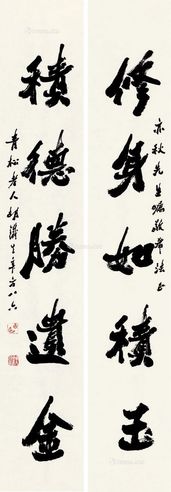 修身如積玉
亦秋先生囑敬希法正
積德勝遺金
青松老人胡漱平年方八六